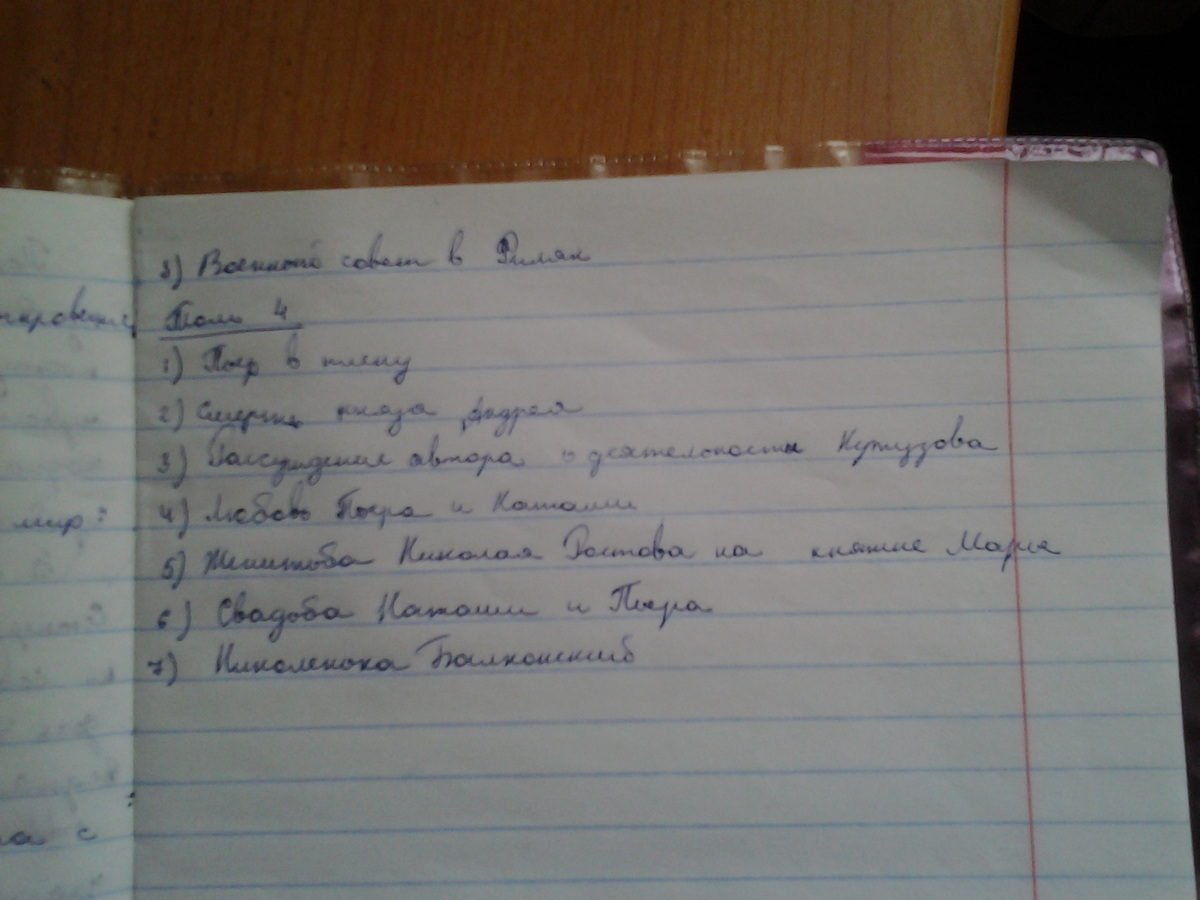 8) Военный совет в Филях
Том 4
1) Пьер в плену
2) Смерть князя Андрея
3) Рассуждения автора о деятельности Кутузова
4) Любовь Пьера и Наташи
5) Женитьба Николая Ростова на княжне Марье
6) Свадьба Наташи и Пьера
7) Николенька Балконский
мир:
на с